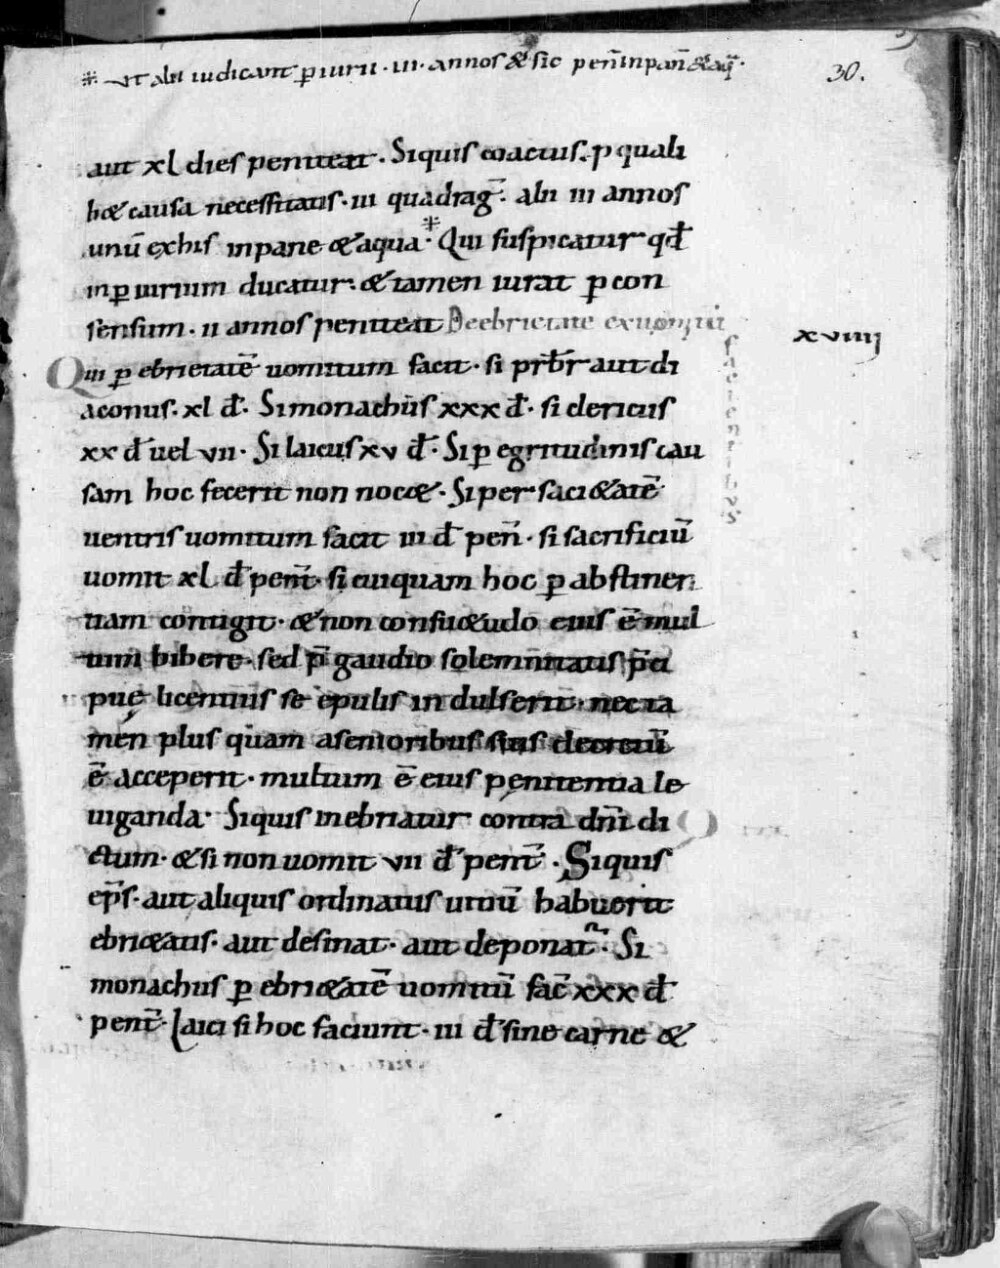 ※ Ut alii iudicant ꝑiurii · iii · annos & sic peñ in pañ & aq̃ ·
30.
aut xl dies peniteat . Siquis coactus . p quali
b& causa necessitatis · iii quadrag̃ . alii iii annos
unū exhis inpane & aqua ·※ Qui suspicatur qđ
inꝑiurium ducatur . & tamen iurat ꝑ con
sensum . ii annos peniteat De ebrietate & uomitū
facientibus
xviiij
Qui ꝑ ebrietatē uomitum facit . si p̄rbr̄ aut di
aconus . xl đ . Si monachus xxx đ . si clericus
xx đ uel vii . Si laicus xv đ . Si ꝑ egritudinis cau
sam hoc fecerit non noc& . Si per saci&atē
uentris uomitum facit iii đ peñ . si sacrificiū
uomit xl đ penit̃ . si cuiquam hoc ꝑ abstinen
tiam contigit . & non consu&udo eius ē mul
tum bibere . sed p̄ gaudio solemnitatis p̄ci
pue licentius se epulis indulserit . nec ta
men plus quam a senioribus suis decretū
ē acceperit . multum ē eius penitentia le
uiganda . Siquis inebriatur contra dn̄i di
ctum . & si non uomit vii đ penit̃ . Siquis
ep̄s . aut aliquis ordinatus uitiū habuerit
ebri&atis . aut desinat . aut deponat̃ . Si
monachus ꝑ ebri&atē uomitū fac̄ xxx đ
penit̃ . Laici si hoc faciunt . iii đ sine carne &